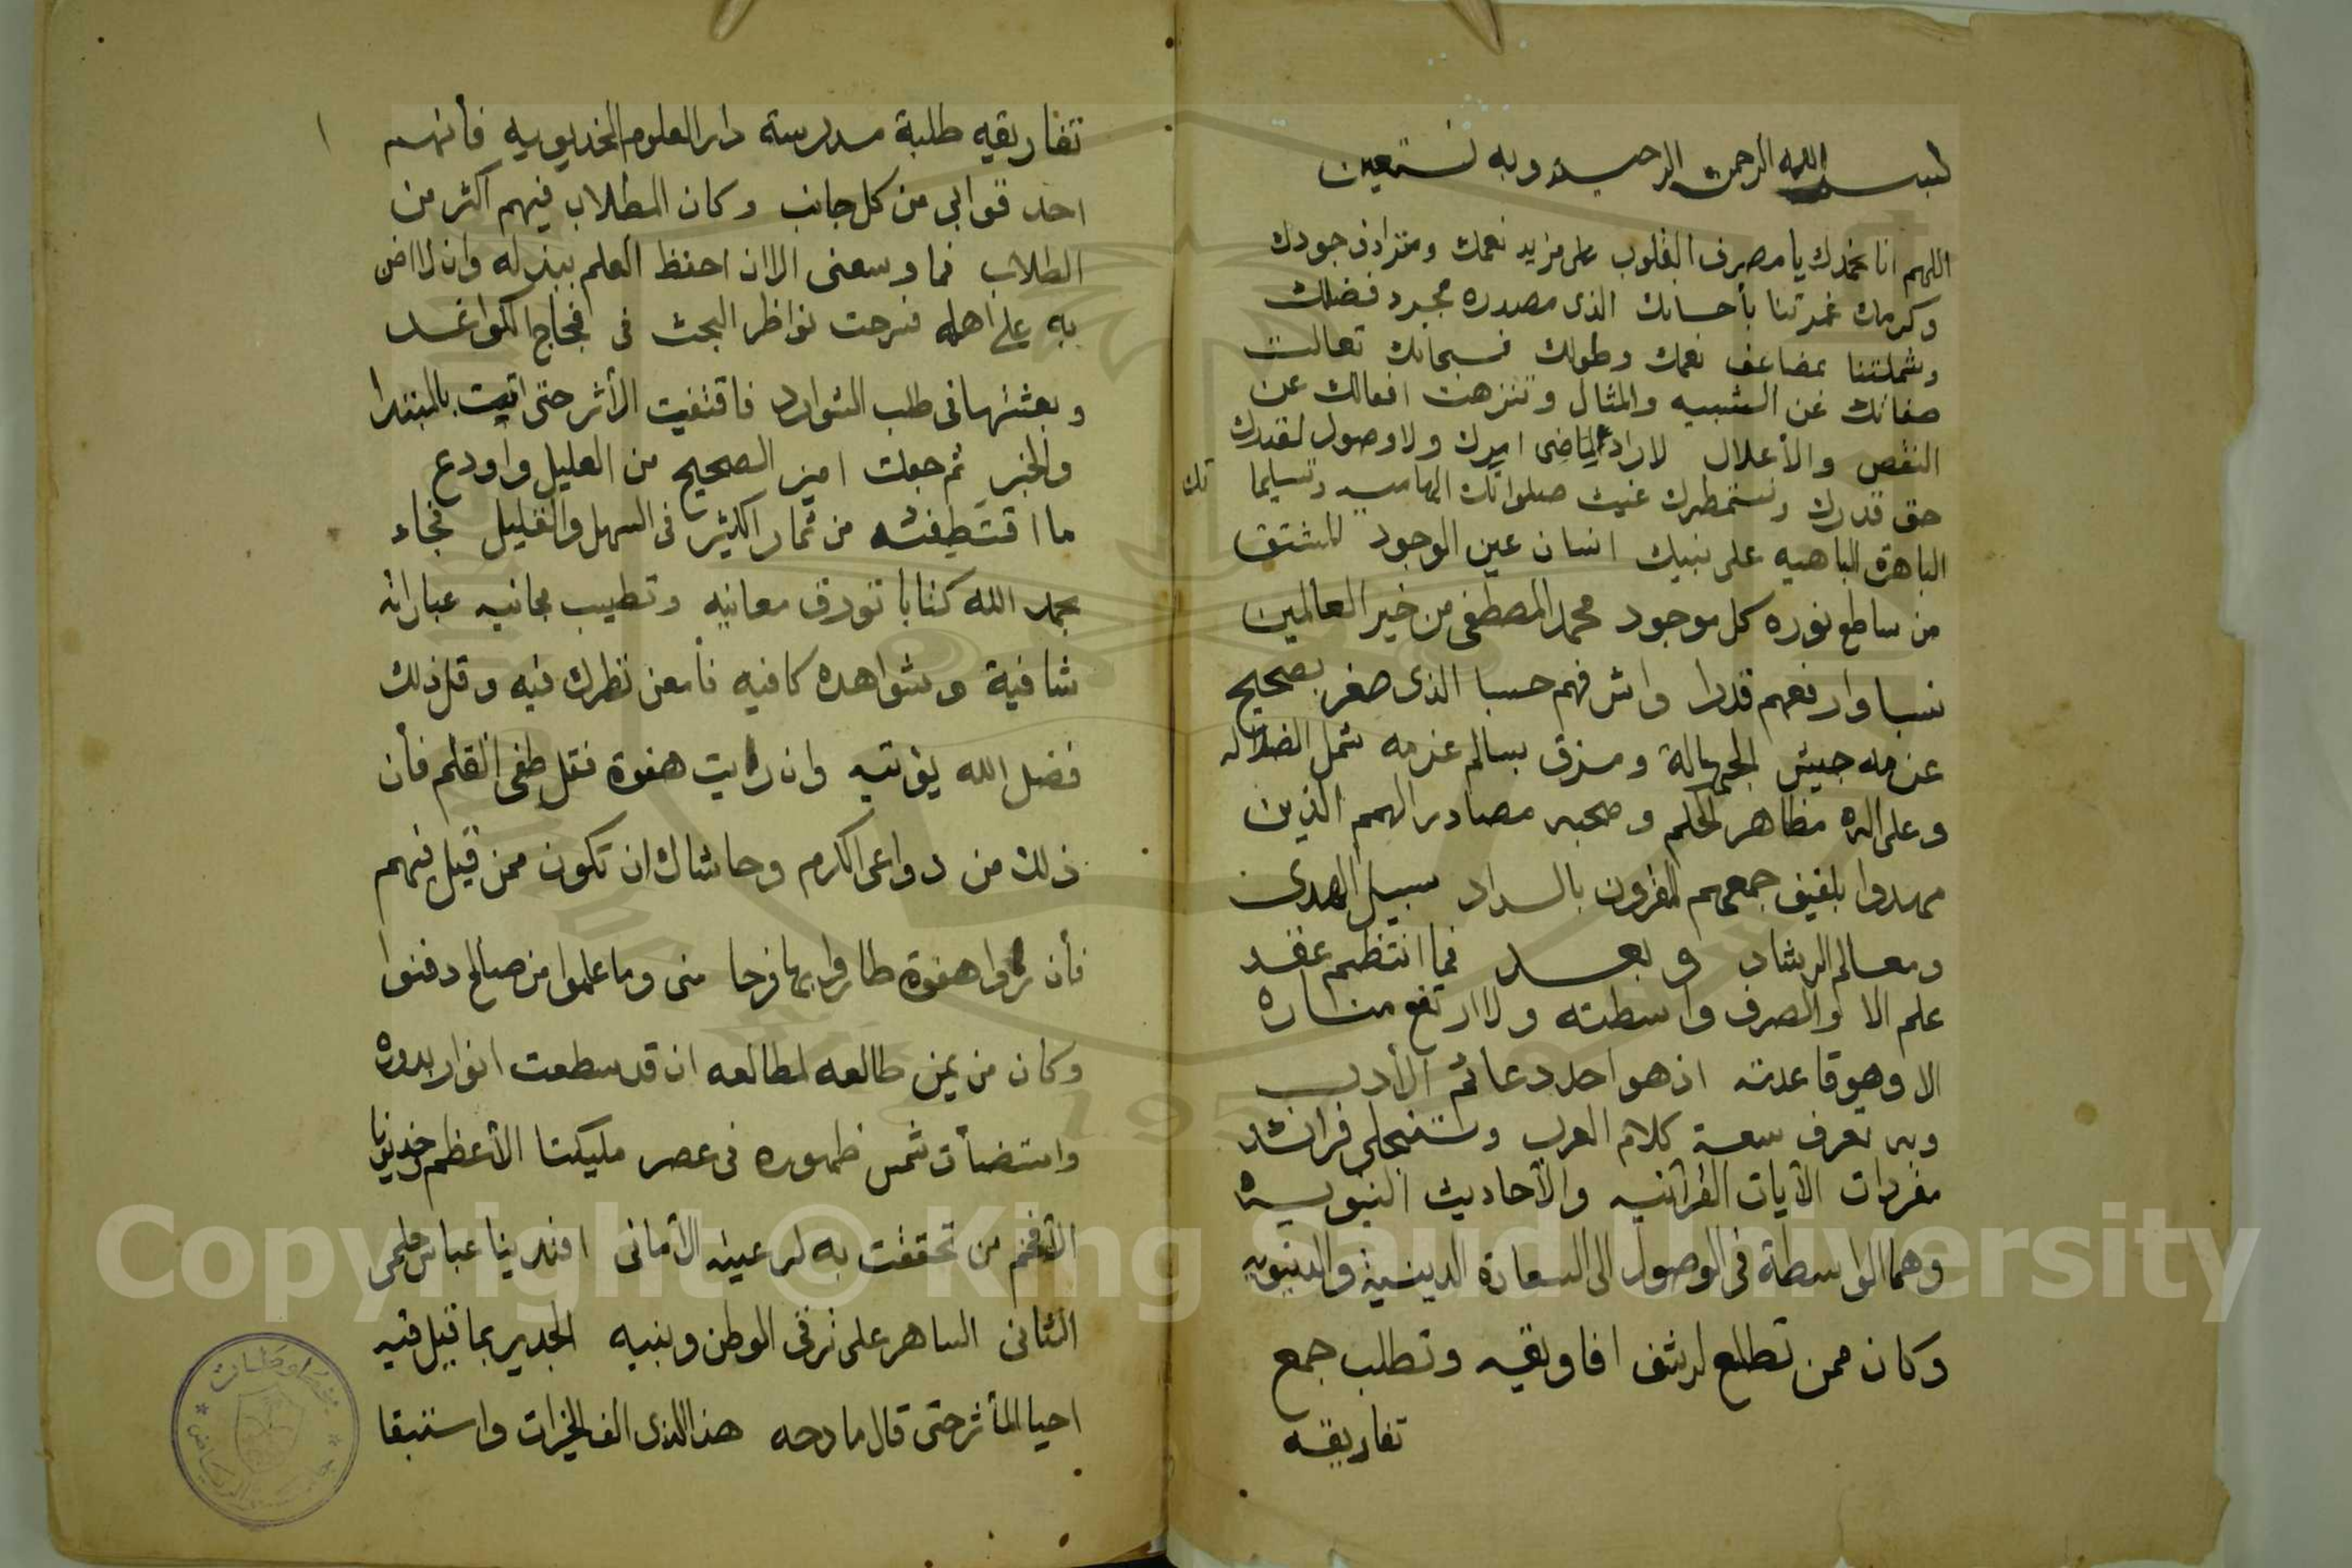 بسم الله الرحمن الرحيم وبه نستعين
اللهم انا نحمدك يا مصرف القلوب على مزيد نعمك ومترادف جودك
وكرمك غمرتنا بأحسانك الذى مصدره مجرد فضلك
وشملتنا بمضاعف نعمك وطولك فسبحانك تعالت
صفاتك عن الشبيه والمثال وتنزهت افعالك عن
النقص والأعلال لاراد لماضى امرك ولا وصول لقدرك
حق قدرك ونستمطرك غيث صلواتك الهاميه وتسليما تك
الباهرة الباهيه على نبيك انسان عين الوجود المشتق
من ساطع نوره كل موجود محمد المصطفى من خير العالمين
نسبا وارفعهم قدرا واشرفهم حسبا الذى صغر بصحيح
عزمه جيش الجهالة ومزق بسالم عزمه شمل الضلاله
وعلى اله مظاهر الحكم وصحبه مصادر الهمم الذين
مهدوا بلفيف جمعهم المقرون بالسداد سبيل الهدى
ومعالم الرشاد وبعد فما انتظم عقد
علم الا والصرف واسطته ولا ارتفع مناره
الا وهو قاعدته اذ هو احد دعائم الأدب
وبه تعرف سعة كلام العرب وتنجلى فرائد
مفردات الآيات القرآنيه والأحاديث النبويه
وهما الواسطة فى الوصول الى السعادة الدينية والدنيويه
وكان ممن تطلع لرشف افاويقه وتطلب جمع
تفاريقه
تفاريقه طلبة مدرسة دار العلوم الخديويه فأنهم
احدقوا بى من كل جانب وكان المطلاب فيهم اكثر من
الطلاب فما وسعنى الا ان احفظ العلم ببذله وان لا اضن
به على اهله فسرحت نواظر البحث فى فجاج الكواغد
وبعثتها فى طلب الشوارد فاقتفيت الأثر حتى اتيت بالمبتدا
والخبر ثم جعلت اميز الصحيح من العليل واودع
ما اقتطفته من ثمار الكثير فى السهل والقليل فجاء
بحمد الله كتابا تورق معانيه وتطيب مجانيه عباراته
شافية وشواهده كافيه فأمعن نظرك فيه وقل ذلك
فضل الله يؤتيه وان رايت هفوة فقل طغى القلم فأن
ذلك من دواعى الكرم وحاشاك ان تكون ممن قيل فيهم
فأن رأوا هفوة طاروا بها فرحا منى وما علموا من صالح دفنوا
وكان من يمن طالعه لمطالعه ان قد سطعت انوار بدوره
واستضأت شمس ظهوره فى عصر مليكنا الأعظم وخديونا
الأفخم من تحققت به لرعيته الأمانى افندينا عباس حلمى
الثانى الساهر على ترقى الوطن وبنيه الجدير بما قيل فيه
احيا المأثر حتى قال مادحه هذا الذى الف الخيرات واستبقا
١
Copyright © King Saud University
1957